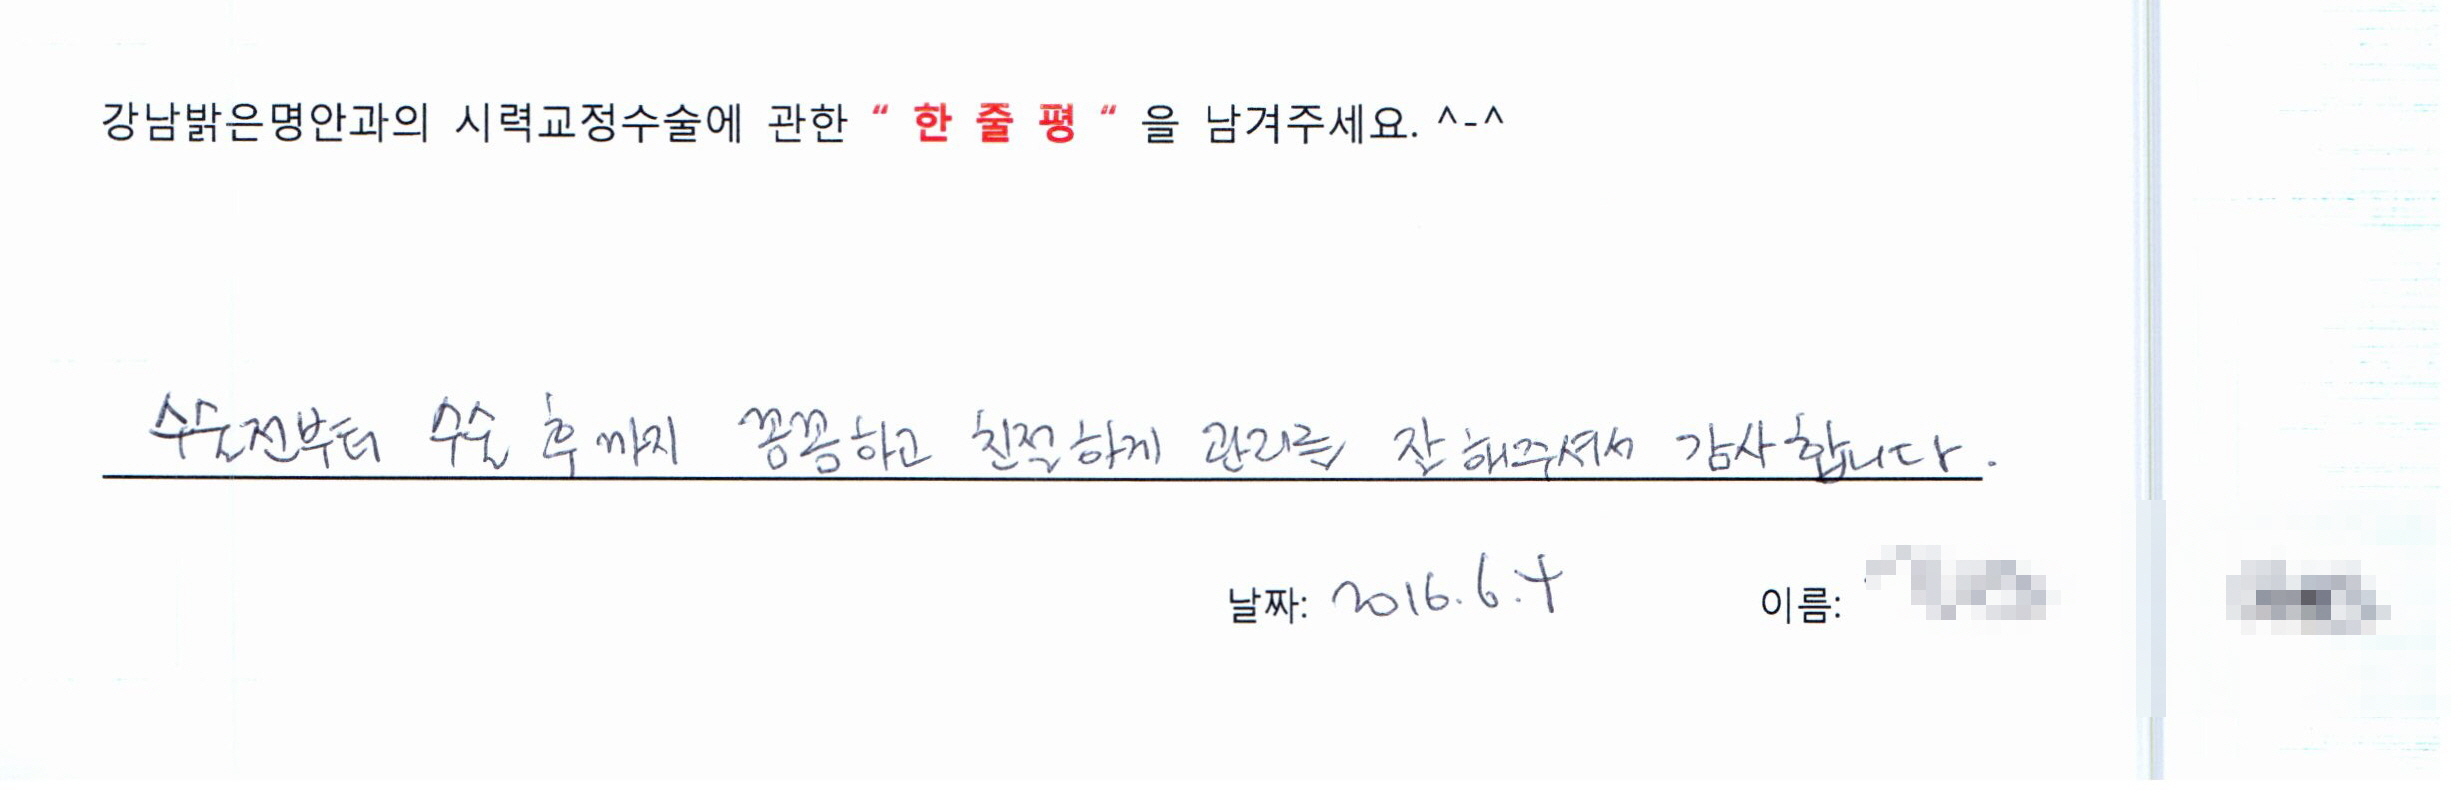 강남밝은명안과의 시력교정수술에 관한 “ 한 줄 평 “ 을 남겨주세요. ^-^
수술전부터 수술 후까지 꼼꼼하고 친절하게 관리를 잘 해주셔서 감사합니다.
날짜: 2016.6.4 이름: